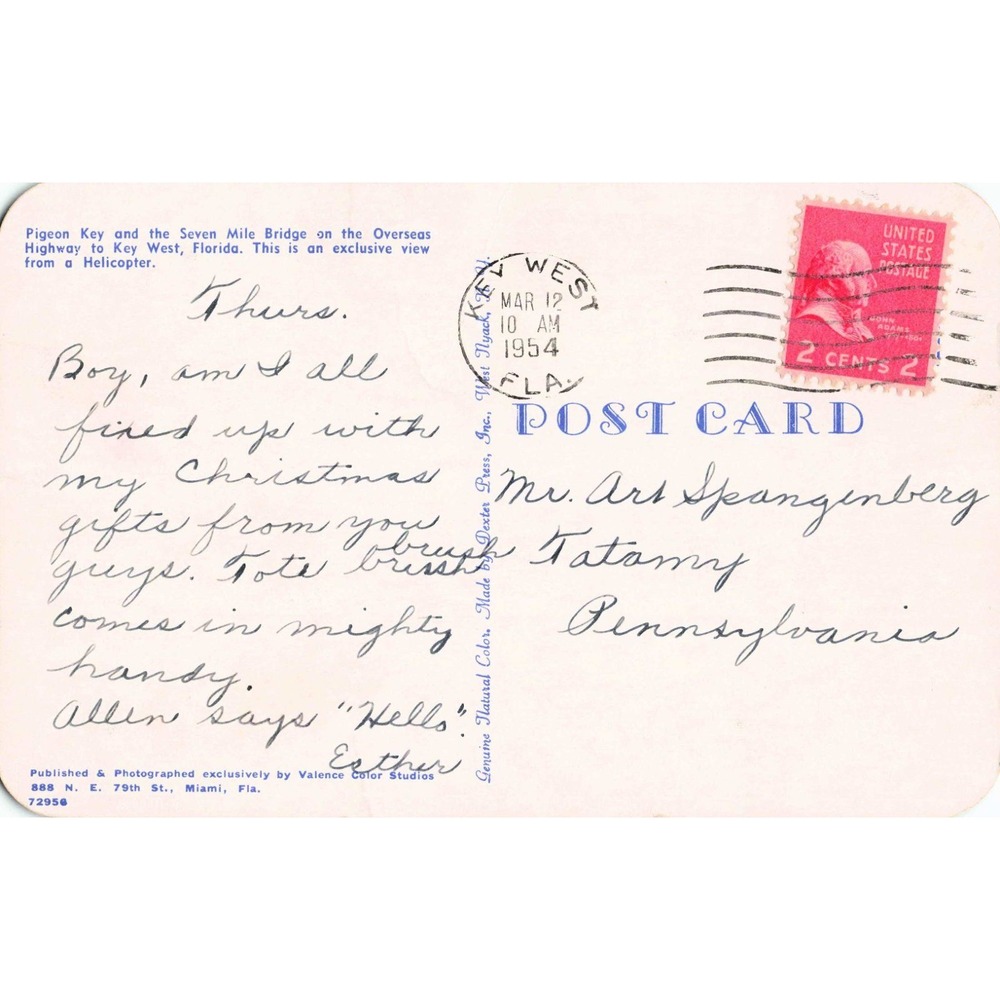 Pigeon Key and the Seven Mile Bridge on the Overseas
Highway to Key West, Florida. This is an exclusive view
from a Helicopter.
Thurs.
Boy, am I all
fixed up with
my Christmas
gifts from you
guys. Tote brush brush
comes in mighty
handy.
Allen says "Hello".
Esther
Published & Photographed exclusively by Valence Color Studios
888 N. E. 79th St., Miami, Fla.
72956
Genuine Natural Color. Made by Dexter Press, Inc., West Nyack, N. Y.
KEY WEST
MAR 12
10 AM
1954
FLA.
UNITED
STATES
POSTAGE
JOHN
ADAMS
2 CENTS 2
POST CARD
Mr. Art Spangenberg
Tatamy
Pennsylvania